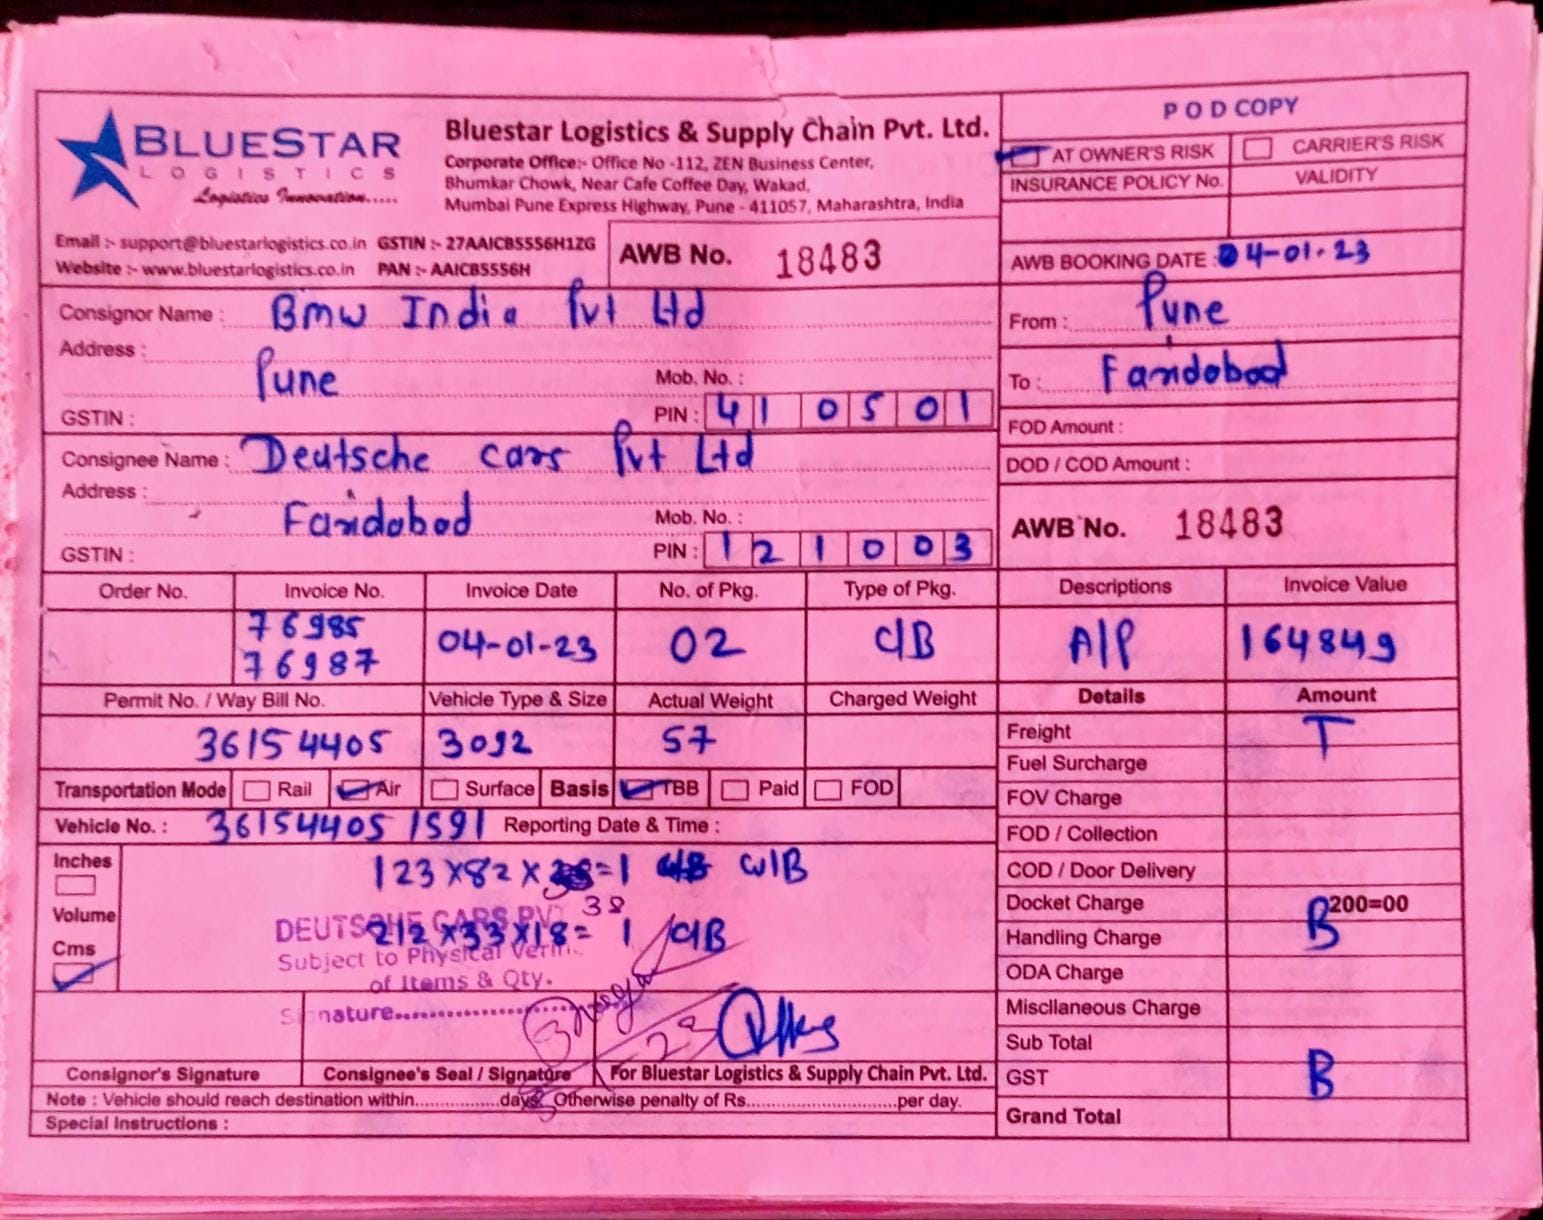 BLUESTAR
LOGISTICS
Logistics Innovation.....
Bluestar Logistics & Supply Chain Pvt. Ltd.
Corporate Office:- Office No -112, ZEN Business Center,
Bhumkar Chowk, Near Cafe Coffee Day, Wakad,
Mumbai Pune Express Highway, Pune - 411057, Maharashtra, India
Email :- support@bluestarlogistics.co.in GSTIN :- 27AAICB5556H1ZG
Website :- www.bluestarlogistics.co.in PAN :- AAICB5556H
AWB No. 18483
POD COPY
AT OWNER'S RISK CARRIER'S RISK
INSURANCE POLICY No. VALIDITY
AWB BOOKING DATE : 04-01-23
Consignor Name : Bmw India Pvt Ltd
Address :
Pune
Mob. No. :
GSTIN : PIN : 410501
From : Pune
To : Faridabad
FOD Amount :
DOD / COD Amount :
Consignee Name : Deutsche cars Pvt Ltd
Address :
Faridabad
Mob. No. :
GSTIN : PIN : 121003
AWB No. 18483
Order No. Invoice No. Invoice Date No. of Pkg. Type of Pkg. Descriptions Invoice Value
76985
76987 04-01-23 02 C/B A/P 164849
Permit No. / Way Bill No. Vehicle Type & Size Actual Weight Charged Weight Details Amount
36154405 3092 57
Freight T
Fuel Surcharge
FOV Charge
FOD / Collection
COD / Door Delivery
Docket Charge 200=00
Handling Charge B
ODA Charge
Miscllaneous Charge
Sub Total
GST B
Grand Total
Transportation Mode Rail Air Surface Basis TBB Paid FOD
Vehicle No. : 36154405 1591 Reporting Date & Time :
Inches
Volume
Cms
123 x 82 x 38 = 1 W/B
212 x 33 x 18 = 1 C/B
DEUTSCHE CARS PVT
Subject to Physical Verifi
of Items & Qty.
Signature..................
Consignor's Signature Consignee's Seal / Signature For Bluestar Logistics & Supply Chain Pvt. Ltd.
Note : Vehicle should reach destination within.................days, Otherwise penalty of Rs..............................per day.
Special Instructions :